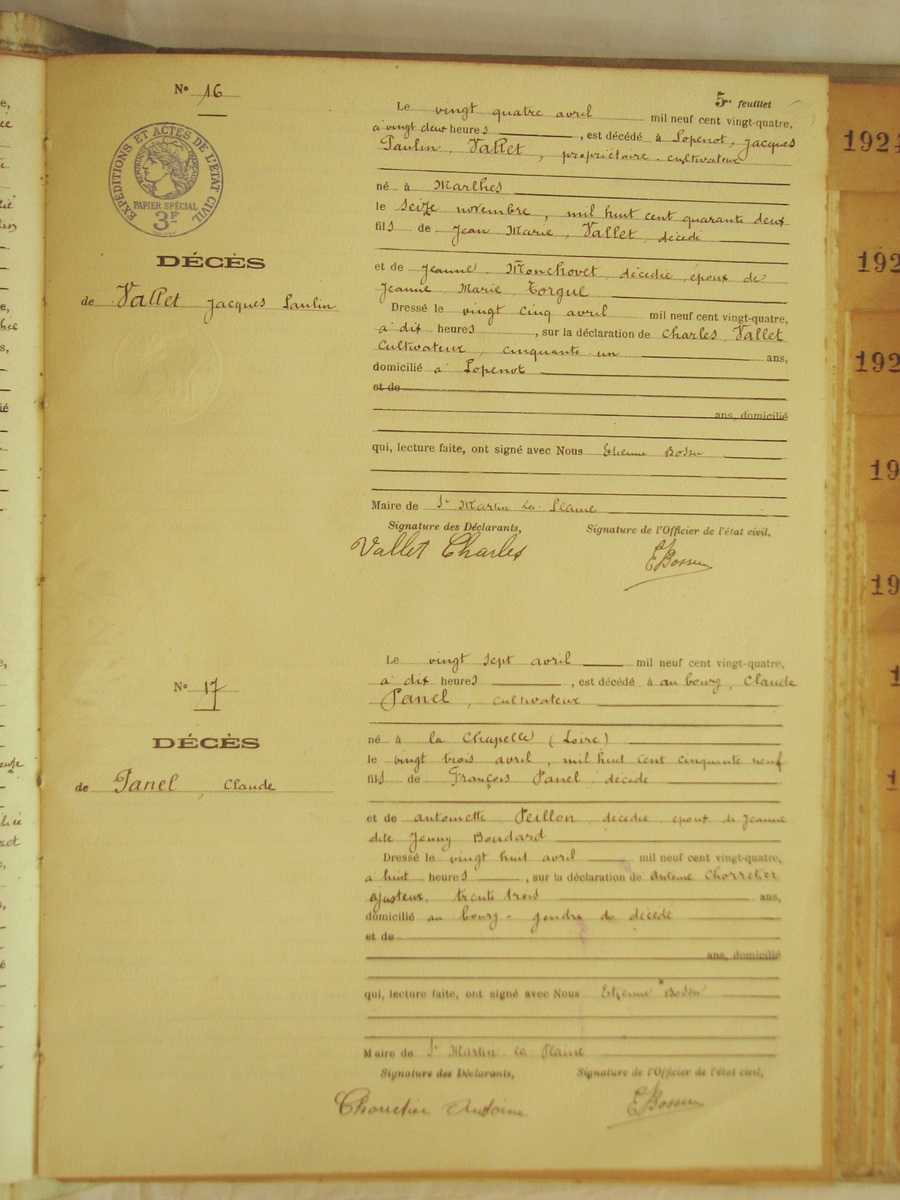 5me feuillet
Nº 16
EXPÉDITIONS ET ACTES DE L'ÉTAT CIVIL
PAPIER SPÉCIAL
3F
DÉCÈS
de Vallet Jacques Paulin
Le vingt quatre avril mil neuf cent vingt-quatre,
à vingt deux heures, est décédé à Lopenot, Jacques
Paulin Vallet, propriétaire cultivateur
né à Marlhes
le seize novembre, mil huit cent quarante deux
fils de Jean Marie, Vallet, décédé
et de Jeanne Monchovet, décédée, époux de
Jeanne Marie Torgue
Dressé le vingt cinq avril mil neuf cent vingt-quatre,
à dix heures, sur la déclaration de Charles Vallet
cultivateur, cinquante un ans,
domicilié à Lopenot
et de
ans, domicilié
qui, lecture faite, ont signé avec Nous Etienne Bossu
Maire de St Martin la Plaine
Signature des Déclarants, Signature de l'Officier de l'état civil,
Vallet Charles E Bossu
Nº 17
DÉCÈS
de Panel, Claude
Le vingt sept avril mil neuf cent vingt-quatre,
à dix heures, est décédé à au bourg, Claude
Panel, cultivateur
né à la Chapelle (Loire)
le vingt trois avril, mil huit cent cinquante neuf
fils de François Panel décédé
et de Antoinette Peillon, décédée époux de Jeanne
dite Jenny Boudard
Dressé le vingt huit avril mil neuf cent vingt-quatre,
à huit heures, sur la déclaration de Antoine Chorretier
ajusteur, trente trois ans,
domicilié au bourg - gendre du décédé
et de
ans, domicilié
qui, lecture faite, ont signé avec Nous Etienne Bossu
Maire de St Martin la Plaine
Signature des Déclarants, Signature de l'Officier de l'état civil,
Chorretier Antoine E Bossu
1924
192
192
19
19
1
1